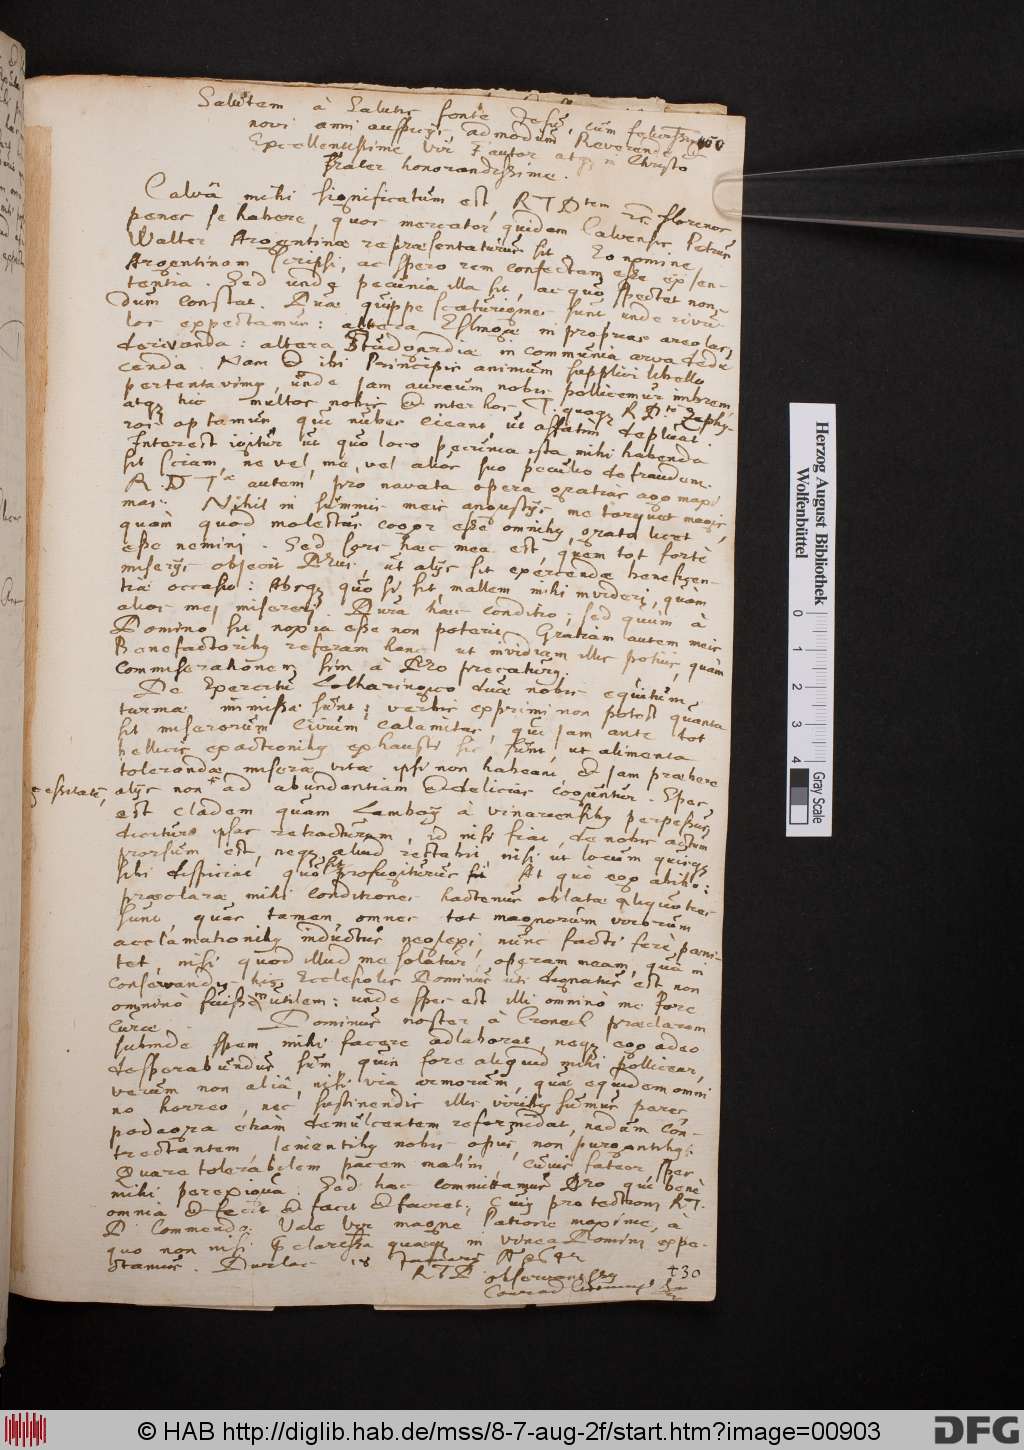 Salutem à Salutis fonte Jesu, cum feliciss.
400
novi anni auspicijs admodum Reverende
Excellentissime Vir Fautor atq; in Christo
Frater honorandissime.
Calvâ mihi significatum est, R T Dtem florenos
penes se habere, quos mercator quidam Calvensis Petrus
Walter Argentinae repraesentaturus sit. Eo nomine
Argentinam scripsi, ac spero rem confectam esse ex sen-
tentia. Sed unde pecunia illa sit, ac quo spectet non-
dum constat. Duae quippe scaturigines sunt unde rivu-
los expectamus: altera Eslingae in proprias areolas
derivanda: altera Studgardia in communia arva dedu
cenda. Nam et ibi Principis animum supplici libello
pertentavimus, unde jam aureum nobis pollicemur imbrem,
atq; hic multos nobis et inter hos T. quoq; R D Zephy-
ros optamus qui nubes cieant, ut affatim depluat.
Interest igitur ut quo loco pecunia ista mihi habenda
sit sciam, ne vel me, vel alios suo peculio defraudem.
R. D T autem pro navata opera gratias ago maxi
mas. Nihil in summis meis angustijs me torquet magis,
quàm quod molestus cogor esse omnibus, grata licet
esse nemini. Sed sors haec mea est, quem tot fortè
miserijs objecit Deus, ut alijs sit exercendae beneficen-
tiae occasio: Absq; quo si sit, mallem mihi invideri, quàm
alios mei misereri. Dura haec conditio; sed quum à
Domino sit noxia esse non poterit. Gratiam autem meis
Benefactoribus referam hanc ut invidiam illis potius, quàm
commiserationem sim à Deo precaturus.
De Exercitu Lotharingico duae nobis equitum
turmae immissae sunt: verbis exprimi non potest quanta
sit miserorum civium calamitas, qui jam ante tot
bellicis exactionibus exhausti sic sunt, ut alimenta
tolerandae miserae vitae ipsi non habeant, et jam praebere
cessitatē, alijs non ad abundantiam et delicias coguntur. Spes
est cladem quam Lamboy à vinariensibus perpessus
dicitur ipsos retracturam, id nisi fiat, de nobis actum
prorsum est, neq; aliud restabit, nisi ut locum quisq;
sibi dispiciat quo sit profugiturus. At quò ego abibo:
praeclarae mihi conditiones hactenus oblatae aliquoties
sunt, quas tamen omnes tot magnorum virorum
acclamationibus inductus neglexi, nunc facti ferè paeni-
tet, nisi quod illud me solatur, operam meam, quâ in
conservandis his Ecclesiolis Dominus uti dignatus est non
omninò fuisse inutilem: unde spes est illi omninò me fore
curae. Dominus noster à Croneck praeclaram
subinde spem mihi facere adlaborat, neq; ego adeo
desperabundus sum quin fore aliquid mihi pollicear,
verum non aliâ, nisi via armorum, quae equidem omni
no horreo, nec sustinendis illis viribus sumus pares
podagra etiam demulcentem reformidat, nedum con-
trectantem lenientibus nobis opus, non purgantibus.
Quare tolerabilem pacem malim, cujus fateor spes
mihi perexigua. Sed haec committamus Deo qui benè
omnia et fecit et facit et faciet, Cujus protectioni RT.
D Commendo. Vale Vir magne Patrone maxime, à
quo non nisi clarissa quaeq; in vinea Domini expe-
ctamus. Durlac 18 Januarij
RTD observantissimus
Conrad
430
Herzog August Bibliothek
Wolfenbüttel
0 1 2 3 4
Gray Scale
© HAB http://diglib.hab.de/mss/8-7-aug-2f/start.htm?image=00903
DFG